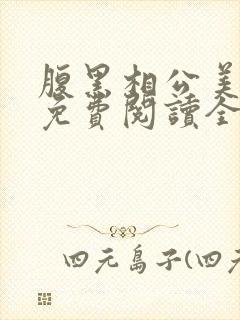 腹黑相公美
免費閱讀全
四元島子(四元